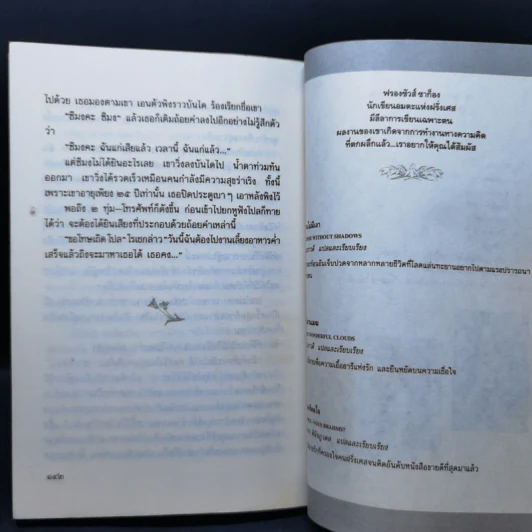 ไปด้วย เธอมองตามเขา เอนตัวพิงราวบันได ร้องเรียกชื่อเขา
"ซิมงคะ ซิมง" แล้วเธอก็เติมถ้อยคำลงไปอีกอย่างไม่รู้สึกตัว
ว่า
"ซิมงคะ ฉันแก่เสียแล้ว เวลานี้ ฉันแก่แล้ว..."
แต่ซิมงไม่ได้ยินอะไรเลย เขาวิ่งลงบันไดไป น้ำตาท่วมท้น
ออกมา เขาวิ่งได้รวดเร็วเหมือนคนกำลังมีความสุขร่าเริง ทั้งนี้
เพราะเขาอายุเพียง ๒๕ ปีเท่านั้น เธอปิดประตูเบาๆ เอาหลังพิงไว้
พอถึง ๒ ทุ่ม–โทรศัพท์ก็ดังขึ้น ก่อนเข้าไปยกหูฟังโปลก็ทาย
ได้ว่า จะต้องได้ยินเสียงที่ประกอบด้วยถ้อยคำเหล่านี้
"ขอโทษเถิดโปล" โรเชกล่าว "วันนี้ฉันต้องไปงานเลี้ยงอาหารค่ำ
เสร็จแล้วถึงจะมาหาเธอได้ เธอคง..."
๑๔๒
ฟรองซัวส์ ซาก็อง
นักเขียนอมตะแห่งฝรั่งเศส
มีลีลาการเขียนเฉพาะตน
ผลงานของเขาเกิดจากการทำงานทางความคิด
ที่ตกผลึกแล้ว...เราอยากให้คุณได้สัมผัส
WITHOUT SHADOWS
แปลและเรียบเรียง
WONDERFUL CLOUDS
แปลและเรียบเรียง
และยืนหยัดบนความเชื่อใจ
แปลและเรียบเรียง